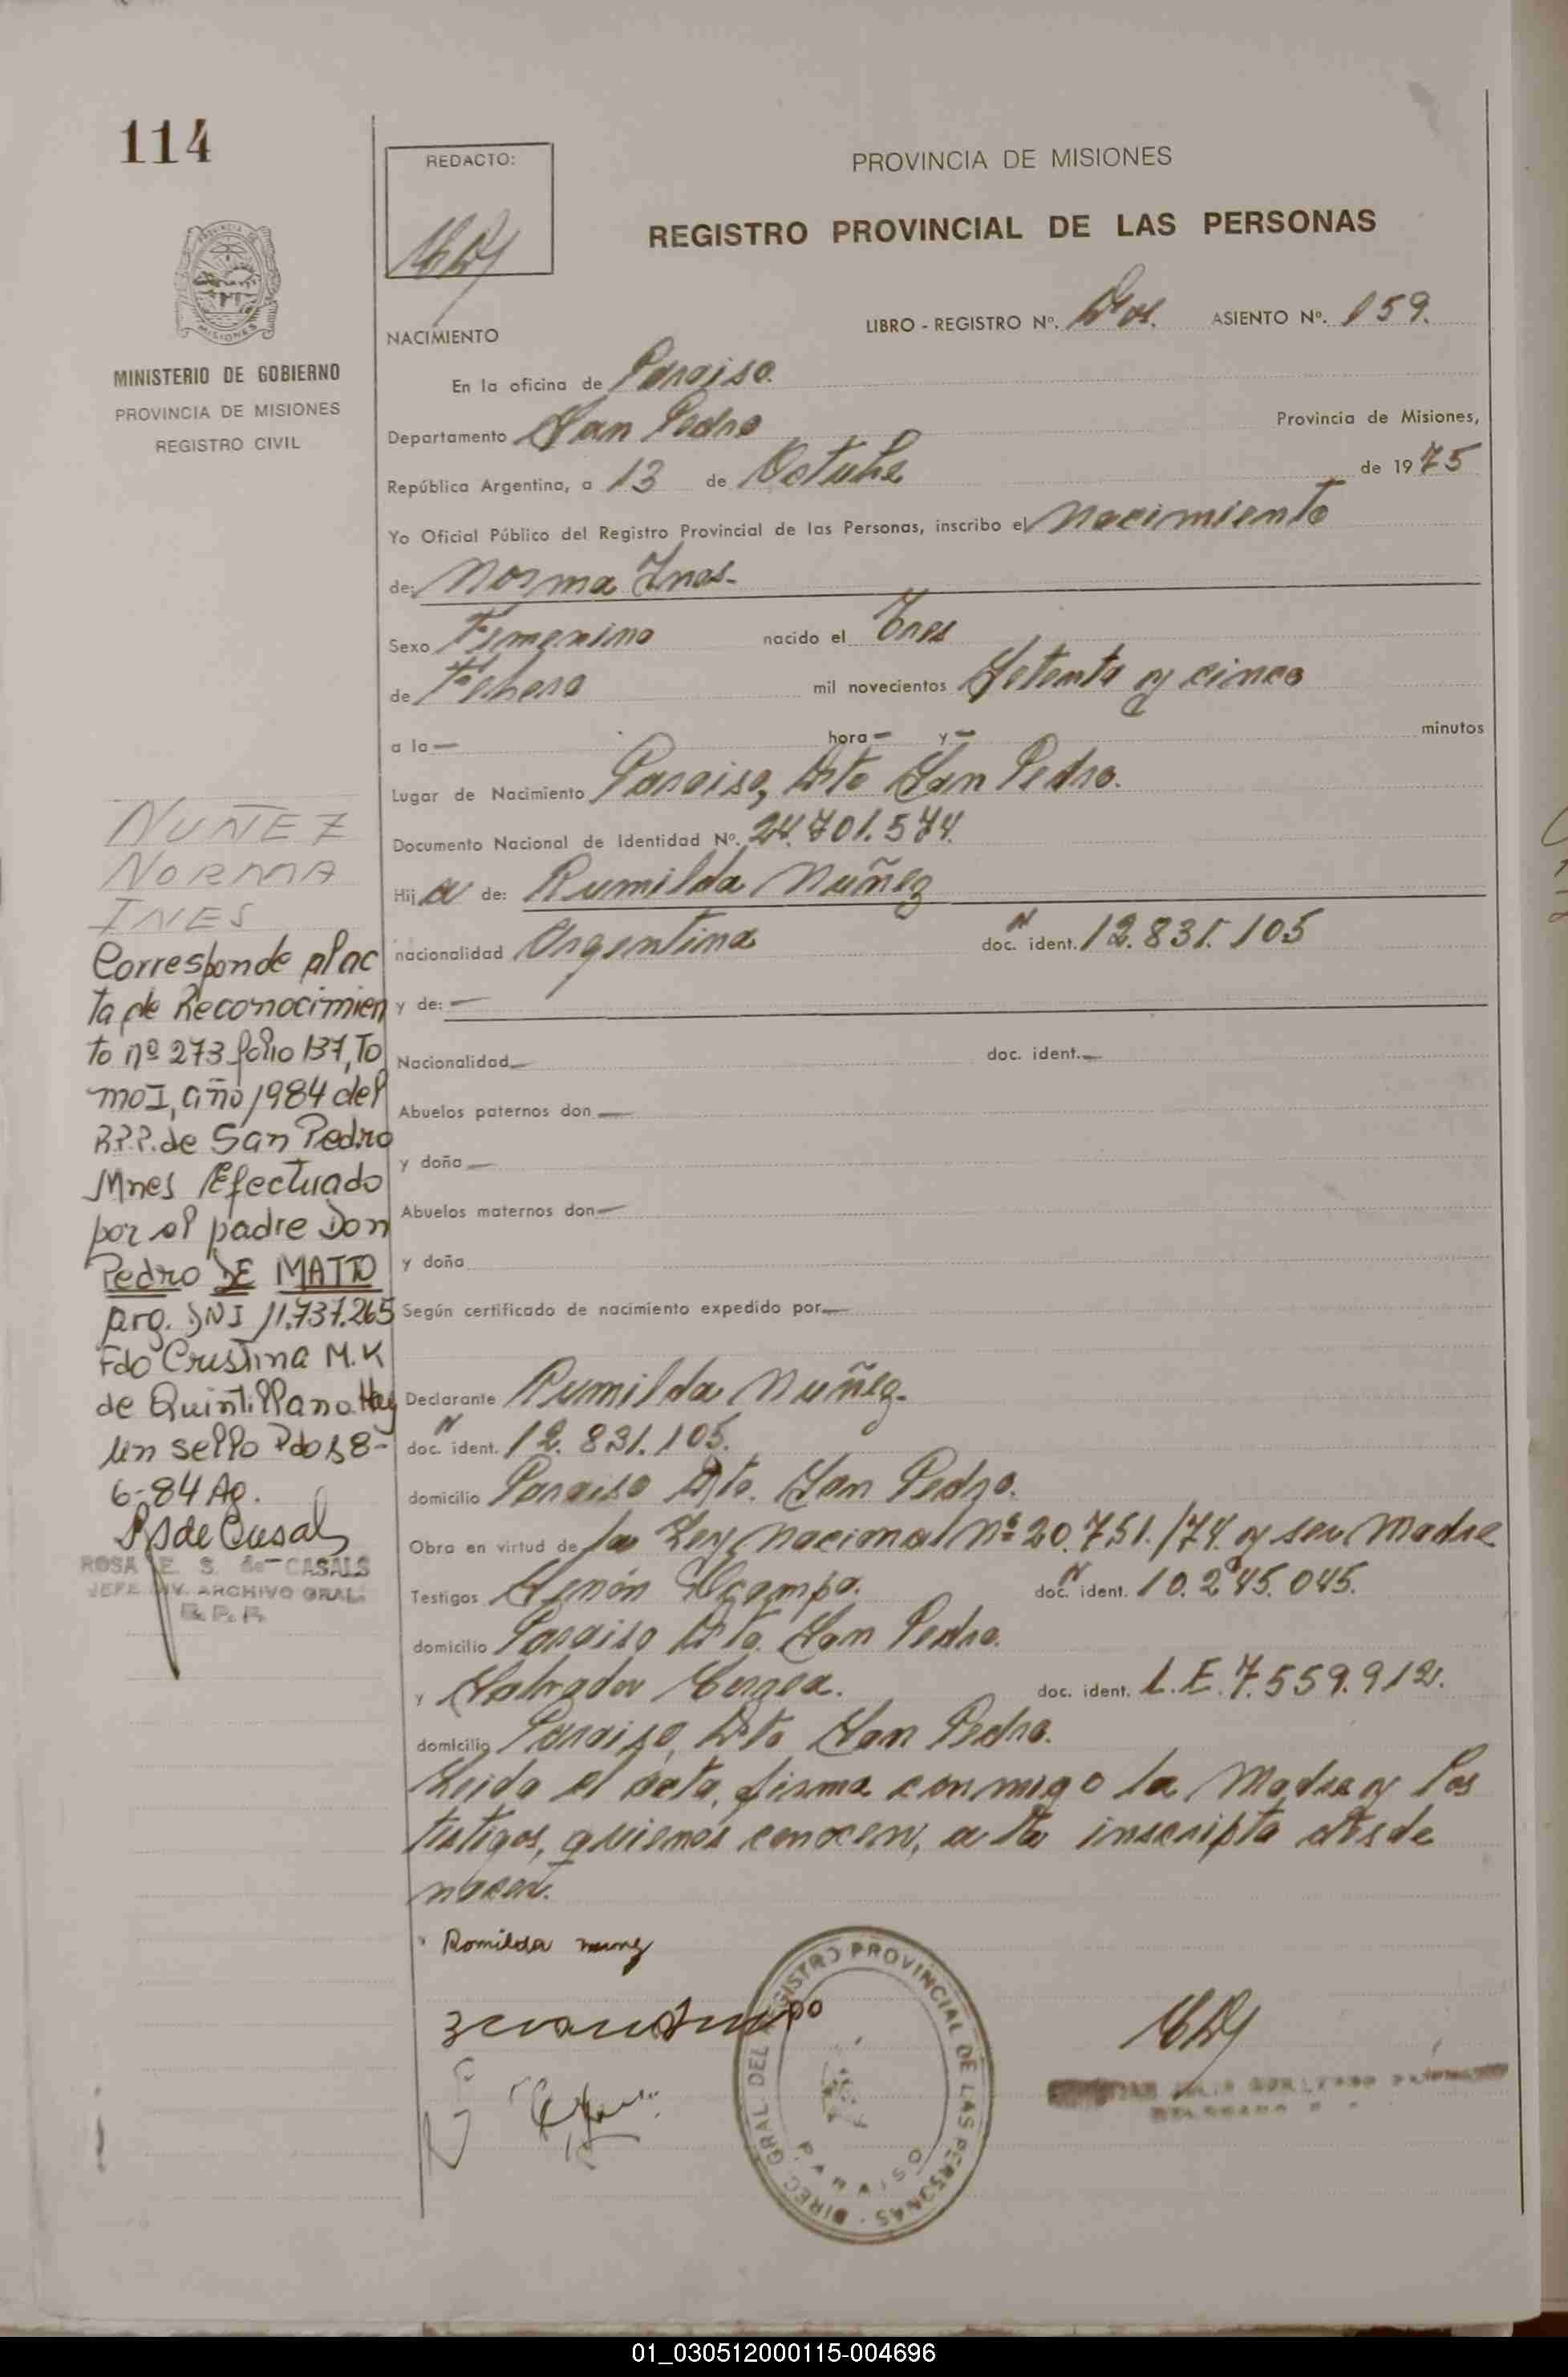 114
REDACTO:
PROVINCIA DE MISIONES
REGISTRO PROVINCIAL DE LAS PERSONAS
MISIONES
MINISTERIO DE GOBIERNO
PROVINCIA DE MISIONES
REGISTRO CIVIL
NACIMIENTO
LIBRO - REGISTRO Nº. Dos. ASIENTO Nº. 159.
En la oficina de Paraiso.
Departamento San Pedro Provincia de Misiones,
República Argentina, a 13 de Octubre de 1975
Yo Oficial Público del Registro Provincial de las Personas, inscribo el Nacimiento
de: Norma Ines-
Sexo Femenino nacido el Tres
de Febrero mil novecientos Setenta y cinco
a la — hora — y — minutos
Lugar de Nacimiento Paraiso, Dto San Pedro.
Documento Nacional de Identidad Nº. 24.701.574.
Hija de: Rumilda Nuñez
nacionalidad Argentina doc. ident. 12.831.105
y de: —
Nacionalidad — doc. ident. —
Abuelos paternos don —
y doña —
Abuelos maternos don —
y doña
Según certificado de nacimiento expedido por —
Declarante Rumilda Nuñez.
doc. ident. 12.831.105.
domicilio Paraiso Dto. San Pedro.
Obra en virtud de la Ley Nacional Nº 20.751./74. y su Madre
Testigos Zenón Ocampo. doc. ident. 10.245.045.
domicilio Paraiso Dto. San Pedro.
y Salvador Correa. doc. ident. L.E. 7.559.912.
domicilio Paraiso, Dto San Pedro.
Leida el acta, firma conmigo la Madre y los
testigos, quienes conocen, a la inscripta desde
nacer.
NUÑEZ
NORMA
INES
Corresponde al ac
ta de Reconocimien
to nº 273 folio 137, To
mo I, año 1984 del
R.P.P. de San Pedro
Mnes Efectuado
por el padre Don
Pedro DE MATTO
arg. DNI 11.737.265
Fdo Cristina M. K
de Quintillana. Hay
un sello Pdos 8-
6-84 Ag.
ROSA E. S. de CASALS
JEFE DIV. ARCHIVO GRAL.
R. P. P.
Romilda nunez
DIREC. GRAL. DEL REGISTRO PROVINCIAL DE LAS PERSONAS
PARAISO
01_030512000115-004696